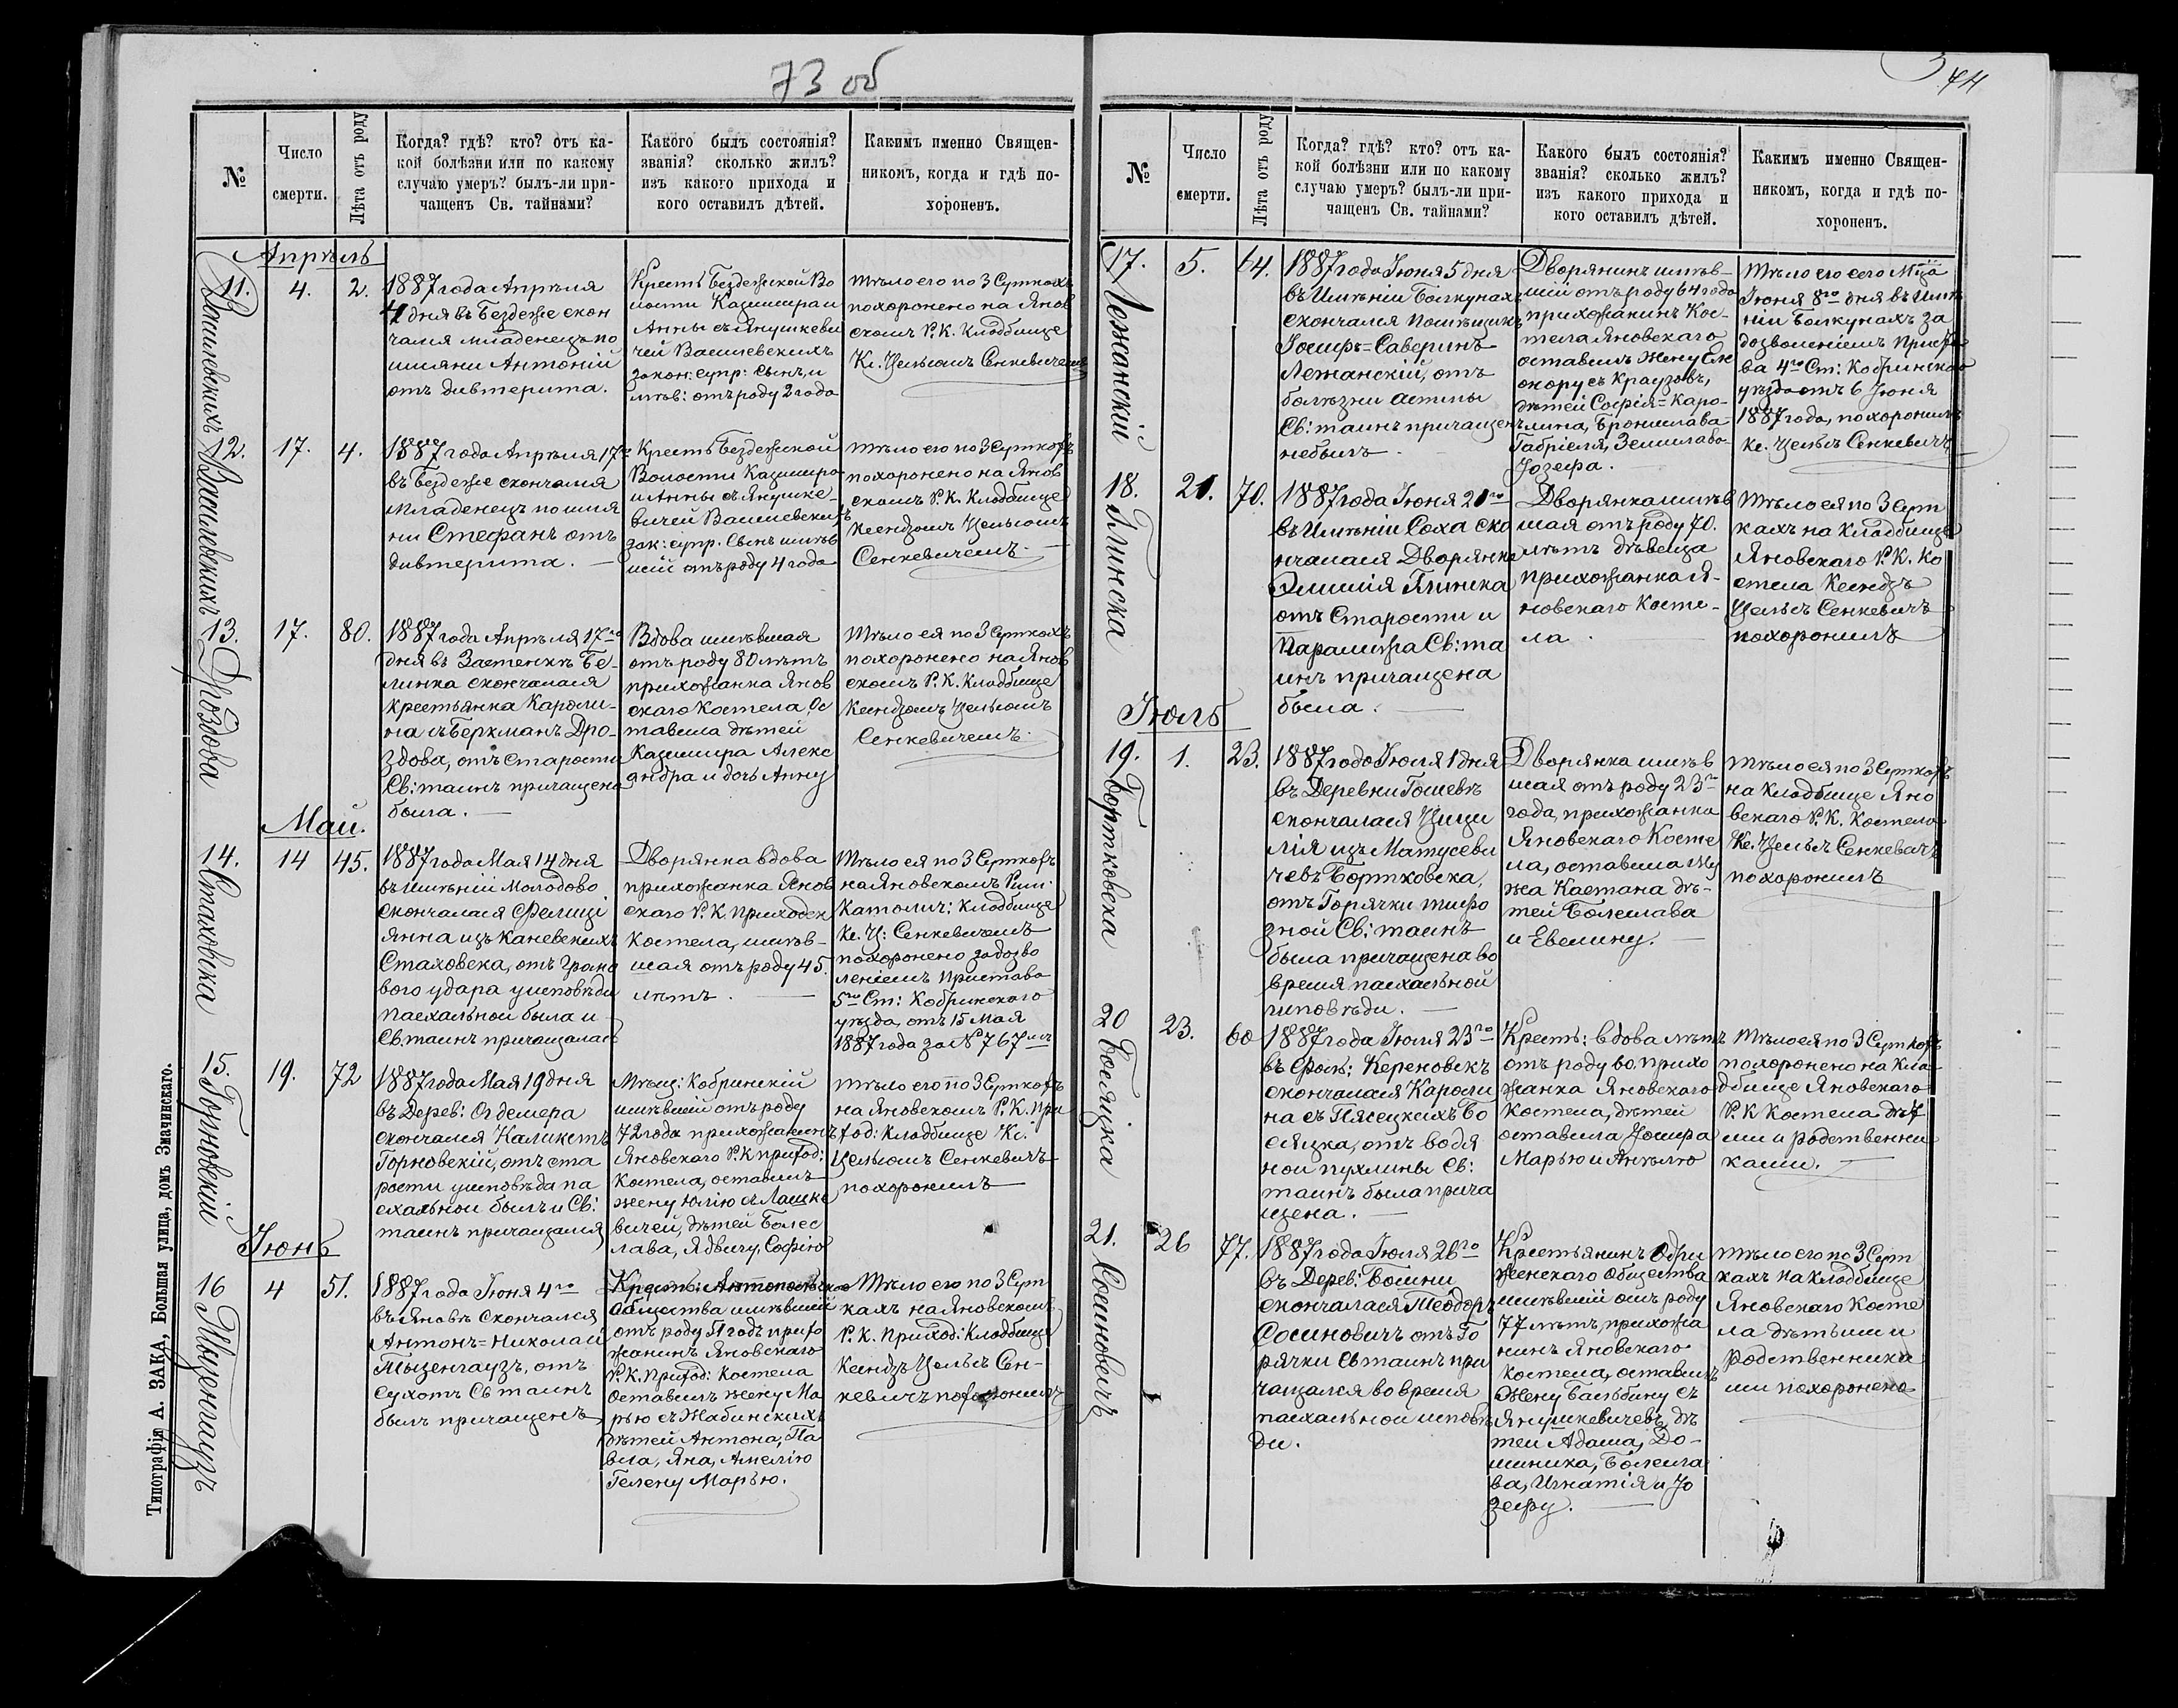 73 об
№
Число
смерти.
Лѣта отъ роду
Когда? гдѣ? кто? отъ ка-
кой болѣзни или по какому
случаю умеръ? былъ-ли при-
чащенъ Св. тайнами?
Какого былъ состоянія?
званія? сколько жилъ?
изъ какого прихода и
кого оставилъ дѣтей.
Какимъ именно Священ-
никомъ, когда и гдѣ по-
хороненъ.
Апрѣль
11.
Василевскихъ
4.
2.
1887 года Апрѣля
4 дня въ Бездеже скон
чался младенецъ по
имяни Антоній
отъ дивтерита.
Крестъ Бездежской Во
лости Казимира и
Анны съ Янушкеви
чей Василевскихъ
закон: супр: сынъ, и
мѣв: отъ роду 2 года
тѣло его по 3 Суткахъ
похоронено на Янов
скомъ Р. К. Кладбище
Кс. Цельсомъ Сенкевичемъ
12.
Василевскихъ
17.
4.
1887 года Апрѣля 17го
въ Бездеже скончался
Младенецъ по имя
ни Стефанъ отъ
дивтерита.
Крестъ Бездежской
Волости Казимира
и Анны съ Янушке-
вичей Василевскихъ
зак: супр. Сынъ имѣв
шій отъ роду 4 года
тѣло его по 3 Суткахъ
похоронено на Янов
скомъ Р. К. Кладбище
Ксендзомъ Цельсомъ
Сенкевичемъ.
13.
Дроздова
17.
80.
1887 года Апрѣля 17го
дня въ Застенкѣ Бе-
линка скончалася
крестьянка Кароли-
на съ Беркманъ Дро-
здова, отъ старости
Св: таинъ причащена
была.
Вдова имѣвшая
отъ роду 80 лѣтъ
прихожанка Янов
скаго Костела, Ос
тавила дѣтей
Казимира Алекс
андра и дочь Анну
тѣло ея по 3 Суткахъ
похоронено на Янов
скомъ Р. К. Кладбище
Ксендзомъ Цельсомъ
Сенкевичемъ.
Май.
14.
Стаховска
14
45.
1887 года Мая 14 дня
въ имѣніи Молодово
скончалася Фелиці
янна изъ Каневскихъ
Стаховска, отъ
вого удара у исповѣди
пасхальной была и
Св. таинъ причащалась
Дворянка вдова
прихожанка Янов
скаго Р. К. Приходск
костела, имѣв-
шая отъ роду 45.
лѣтъ.
тѣло ея по 3 Суткахъ
на Яновскомъ Рим.
Католич: Кладбище
Кс. Ц: Сенкевичемъ
похоронено за дозво
леніемъ Пристава
5го Ст: Кобринскаго
уѣзда, отъ 15 Мая
1887 года за № 767
15.
Горновскій
19.
72
1887 года Мая 19 дня
въ Дерев: Огдемера
скончался Каликстъ
Горновскій, отъ ста
рости у исповѣда па
схальной былъ и Св:
таинъ причащался
Мѣщ: Кобринскій
имѣвшій отъ роду
72 года прихожанинъ
Яновскаго Р. К приход:
костела, оставилъ
жену Юлію съ Лашке
вичей, дѣтей Болес
лава, Ядвигу, Софію
тѣло его по 3 Суткахъ
на Яновскомъ Р. К. при
ход: кладбище Кс.
Цельсомъ Сенкевичъ
похоронилъ
Іюнь
16
Тызенгаузъ
4
51.
1887 года Іюня 4го
въ Яновѣ скончался
Антонъ=Николай
Тызенгаузъ, отъ
сухотъ Св таинъ
былъ причащенъ
Крестъ: Антопольскаго
Общества имѣвшій
отъ роду 51 годъ прихо
жанинъ Яновскаго
Р. К. Приход: Костела
Оставилъ жену Ма
рью съ Жабинскихъ
дѣтей Антона, Па
вла, Яна, Амелію
Гелену Марью.
Тѣло его по 3 Сут
кахъ на Яновскомъ
Р. К. приход: Кладбище
Ксендзъ Цельсъ Сен-
кевичъ похоронилъ
Типографія А. ЗАКА, Большая улица, домъ Змачинскаго.
74
№
Число
смерти.
Лѣта отъ роду
Когда? гдѣ? кто? отъ ка-
кой болѣзни или по какому
случаю умеръ? былъ-ли при-
чащенъ Св. тайнами?
Какого былъ состоянія?
званія? сколько жилъ?
изъ какого прихода и
кого оставилъ дѣтей.
Какимъ именно Священ-
никомъ, когда и гдѣ по-
хороненъ.
17.
Лежанскій
5.
64.
1887 года Іюня 5 дня
въ Имѣніи Болкунахъ
скончался помѣщикъ
Іосифъ=Саверинъ
Лежанскій, отъ
болѣзни астмы
Св: таинъ причащенъ
небылъ.
Дворянинъ имѣв-
шій отъ роду 64 года
прихожанинъ Кос-
тела Яновскаго
оставилъ жену Еле
онору съ Краузовъ,
дѣтей Софія=Каро-
лина, Бронислава
Габріеля, Земислава
Іозефа.
тѣло его сего Мца
Іюня 8го дня въ имѣ
ніи Болкунахъ за
дозволеніемъ Приста
ва 4го Ст: Кобринскаго
уѣзда отъ 6 Іюня
1887 года, похоронилъ
Кс. Цельсъ Сенкевичъ
18.
Глинска
21.
70.
1887 года Іюня 21го
въ Имѣніи Соха ско
нчалася Дворянка
Эмилія Глинска
отъ Старости и
паралижа Св: та
инъ причащена
была.
Дворянка имѣв
шая отъ роду 70.
лѣтъ дѣвица
прихожанка Я-
новскаго Косте-
ла.
Тѣло ея по 3 сут
кахъ на кладбище
Яновскаго Р. К. Ко
стела Ксендзъ
Цельсъ Сенкевичъ
похоронилъ
Іюль
19.
Бортковска
1.
23.
1887 года Іюля 1 дня
въ Деревни Гошевѣ
скончалася Цици
лія изъ Матусеви
чевъ Бортковска,
отъ Горячки тифо
зной Св: таинъ
была причащена во
время пасхальной
исповѣди.
Дворянка имѣв
шая отъ роду 23
года, прихожанка
Яновскаго Косте
ла, оставила му
жа Каетана дѣ-
тей Болеслава
и Евелину.
тѣло ея по 3 Суткахъ
на кладбище Яно
вскаго Р. К. Костела
Кс. Цельсъ Сенкевичъ
похоронилъ
20
Босяцка
23.
60
1887 года Іюля 23го
въ Фоль: Кереновекъ
скончалася Кароли
на съ Пясецкихъ Бо
сяцка, отъ водя
ной пухлины Св:
таинъ была прича
щена.
Крестъ: вдова лѣтъ
отъ роду 60. прихо
жанка Яновскаго
костела, дѣтей
оставила Іосифа
Марью и Анѣлю
тѣло ея по 3 Суткахъ
похоронено на кла-
дбище Яновскаго
Р. К Костела дѣт
ми и родственни
ками.
21.
Сосиновичъ
26
77.
1887 года Іюля 26го
въ Дерев:
скончалася Теодоръ
Сосиновичъ отъ Го
рячки Св таинъ при
чащался во время
пасхальной исповѣ
ди.
Крестьянинъ Одри
жинскаго общества
имѣвшій отъ роду
77 лѣтъ, прихожа
нинъ Яновскаго
костела, оставилъ
жену Бальбину съ
Янушкевичевъ, дѣ
тей Адама, До-
миника, Болесла
ва, Игнатія и Іо
зефу.
тѣло его по 3 Сут
кахъ на кладбище
Яновскаго Косте
ла дѣтьми и
родственника
ми похоронено